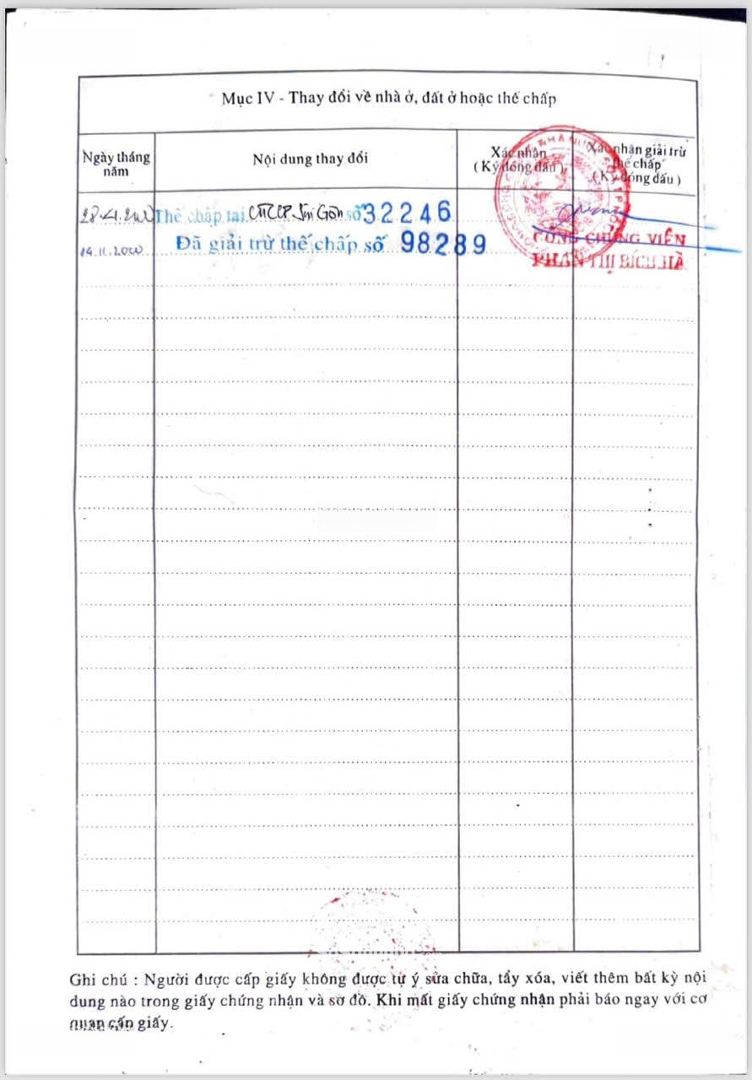 Mục IV - Thay đổi về nhà ở, đất ở hoặc thế chấp
Ngày tháng năm
Nội dung thay đổi
Xác nhận
( Ký đóng dấu )
Xác nhận giải trừ thế chấp
( Ký đóng dấu )
Thế chấp tại Sài Gòn số 32246
14.11.2000 Đã giải trừ thế chấp số 98289
CÔNG CHỨNG VIÊN
PHAN THỊ BÍCH HÀ
Ghi chú : Người được cấp giấy không được tự ý sửa chữa, tẩy xóa, viết thêm bất kỳ nội
dung nào trong giấy chứng nhận và sơ đồ. Khi mất giấy chứng nhận phải báo ngay với cơ
quan cấp giấy.